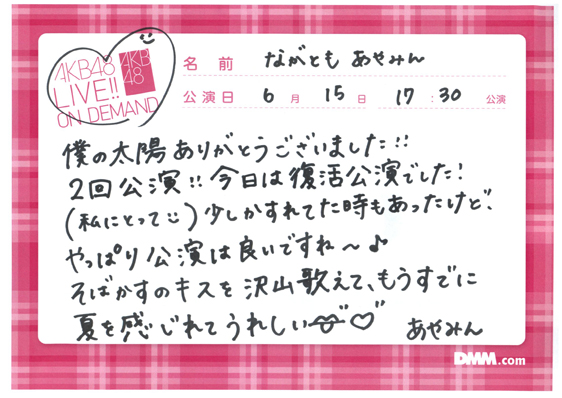 AKB48
LIVE!!
ON DEMAND
AKB
48
名 前 ながとも あやみん
公演日 6 月 15 日 17 : 30 公演
僕の太陽ありがとうございました!!
2回公演!! 今日は復活公演でした!
(私にとって) 少しかすれてた時もあったけど、
やっぱり公演は良いですね〜♪
そばかすのキスを沢山歌えて、もうすでに
夏を感じれてうれしい♡
あやみん
DMM.com